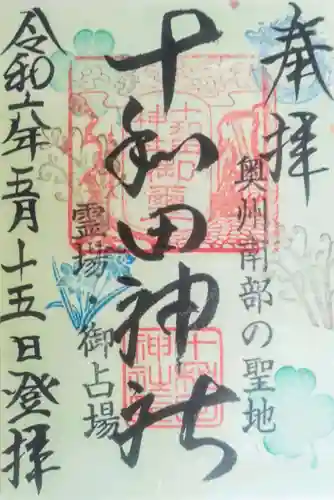 奉拝
奥州南部の聖地
十和田神社
霊場・御占場
令和六年五月十五日登拝
十和田
神社